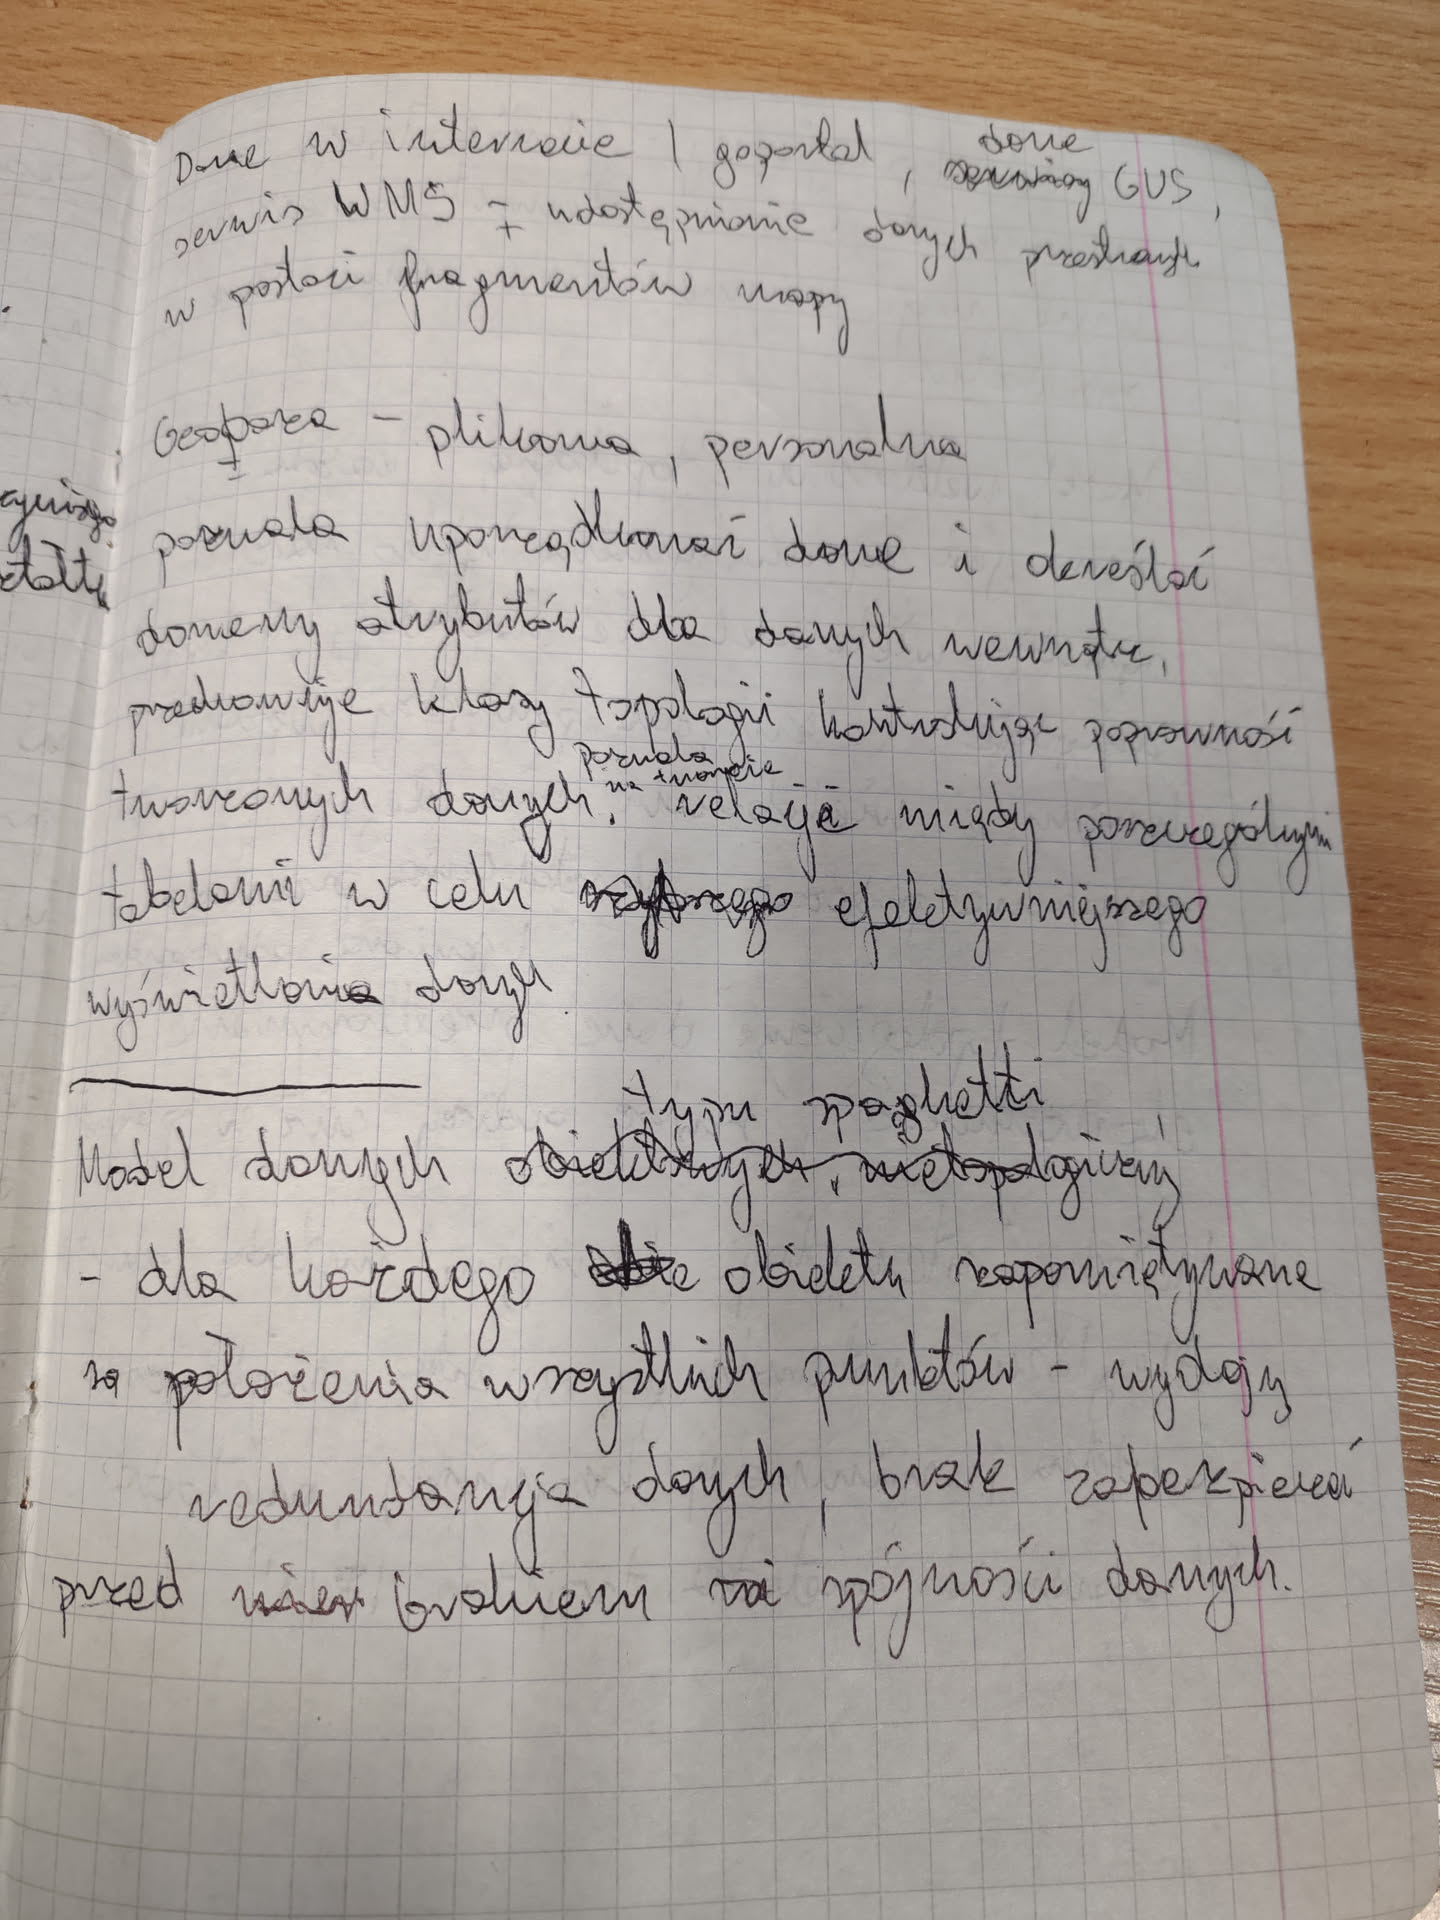 Dane w internecie | goportal, dane GUS,
serwis WMS - udostępnianie danych przestrzych
w postaci fragmentów mapy
Geobaza - plikowa, personalna
pozwala uporządkować dane i określać
domeny atrybutów dla danych wewnątrz,
przechowuje klasy topologii kontrolując poprawność
pozwala
na tworzenie
tworzonych danych, relacje między poszczególnymi
tabelami w celu efektywniejszego
wyświetlania danych
typu spaghetti
Model danych
- dla każdego obiektu zapamiętywane
są położenia wszystkich punktów - wydajy
redundancja danych, brak zabezpieczeń
przed brakiem spójności danych.